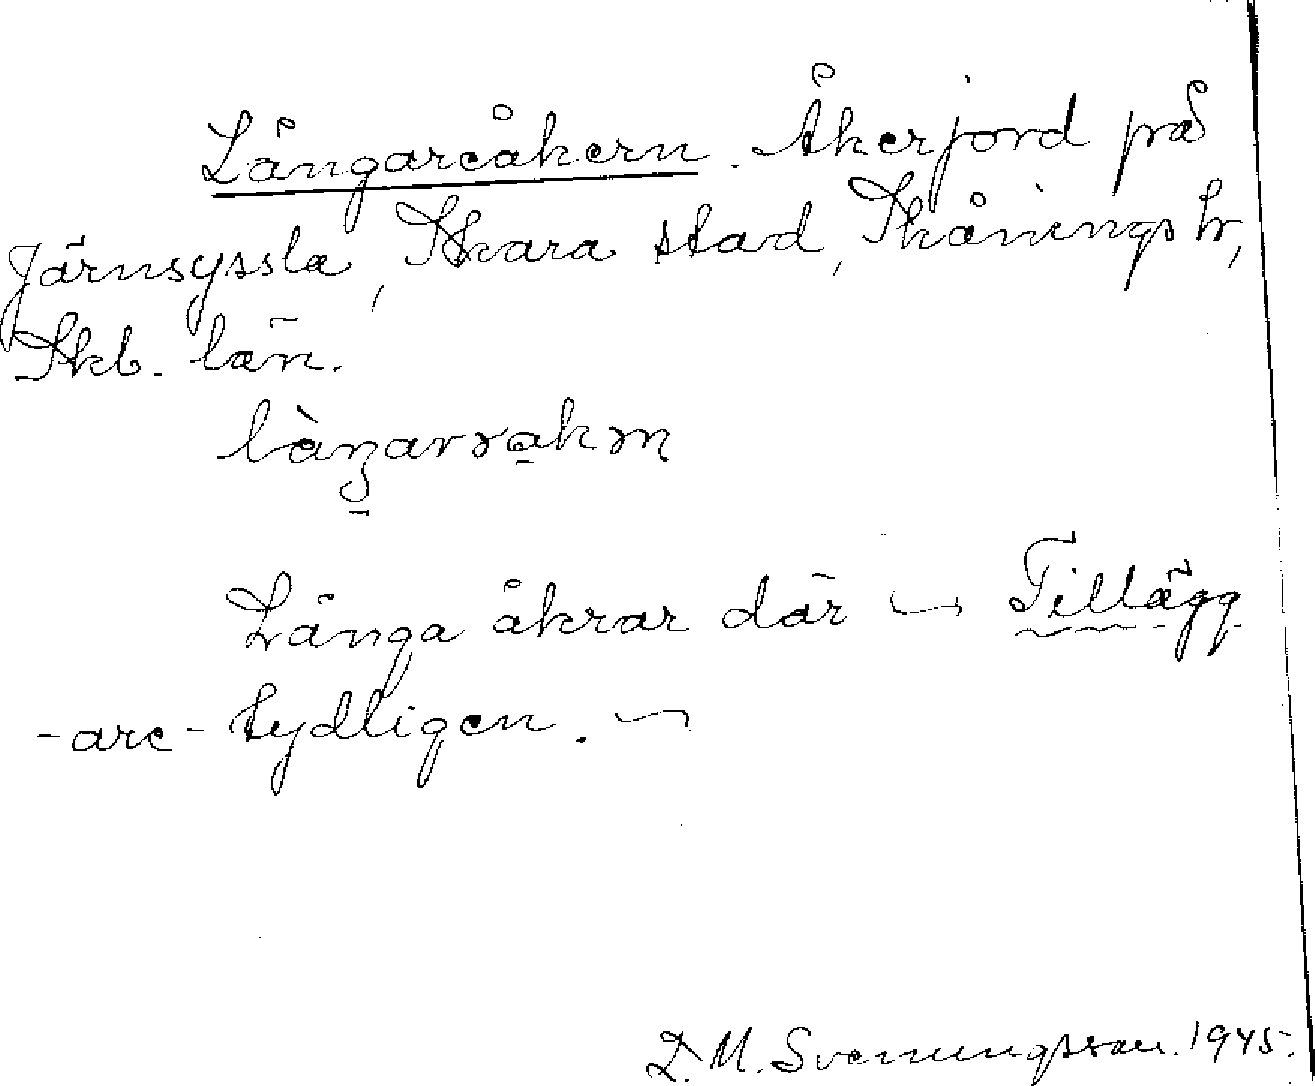 Långareåkern. Åkerjord på
Järnsyssla, Skara stad, Skånings hr,
Skb. län.
Långa åkrar där Tillägg
-are- tydligen.
D. M. Svenungsson. 1945.